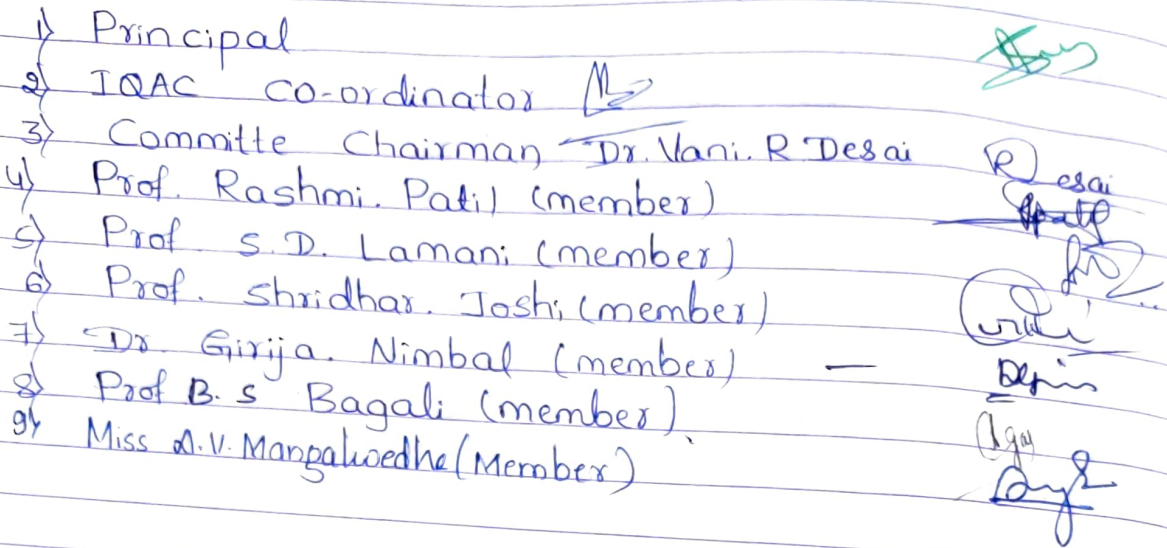 1) Principal
2) IQAC co-ordinator
3) Committe Chairman Dr. Vani. R Desai
4) Prof. Rashmi. Patil (member)
5) Prof. S. D. Lamani (member)
6) Prof. Shridhar. Joshi (member)
7) Dr. Girija. Nimbal (member) —
8) Prof B. S Bagali (member)
9) Miss A.V. Mangalwedhe (Member)